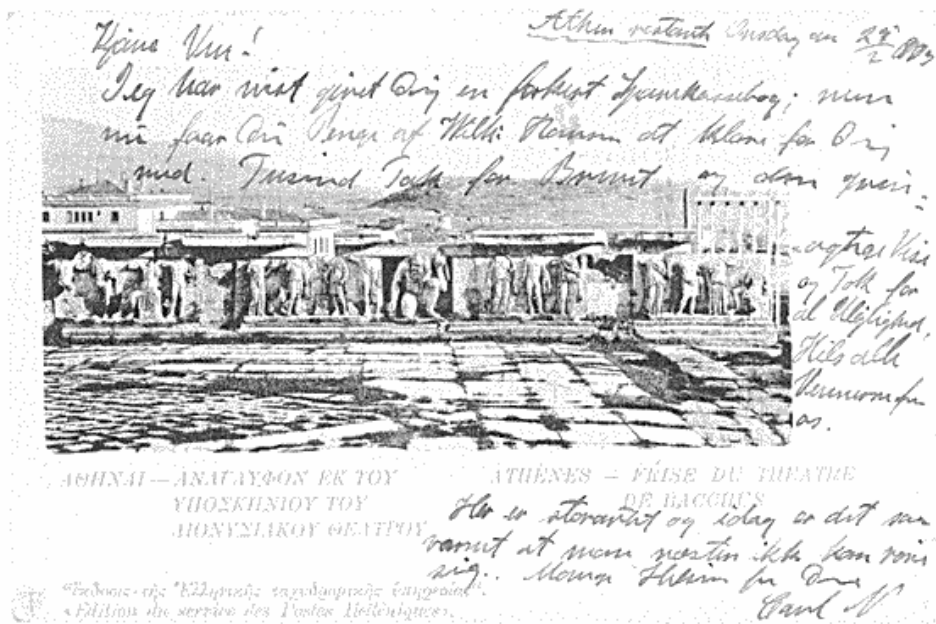 Athen restante Onsdag den
Kjære Ven!
Jeg har vist givet Dig en forkert Sparekassebog; men
nu faar Du Penge af Wilh: Hansen at klare for Dig
med. Tusind Tak for Brevet og den
Vise
og Tak for
al Ulejlighed,
Hils alle
Vennerne fra
os.
ΑΘΗΝΑΙ — ΑΝΑΓΛΥΦΟΝ ΕΚ ΤΟΥ
ΥΠΟΣΚΗΝΙΟΥ ΤΟΥ
ΔΙΟΝΥΣΙΑΚΟΥ ΘΕΑΤΡΟΥ
ATHÈNES — FRISE DU THEATRE
DE BACCHUS
Her er storartet og idag er det saa
varmt at man næsten ikke kan røre
sig. Mange Hilsen fra Din
Carl N
"Έκδοσις τής Ἑλληνικής ταχυδρομικής ὑπηρεσίας".
«Edition du service des Postes Helléniques».